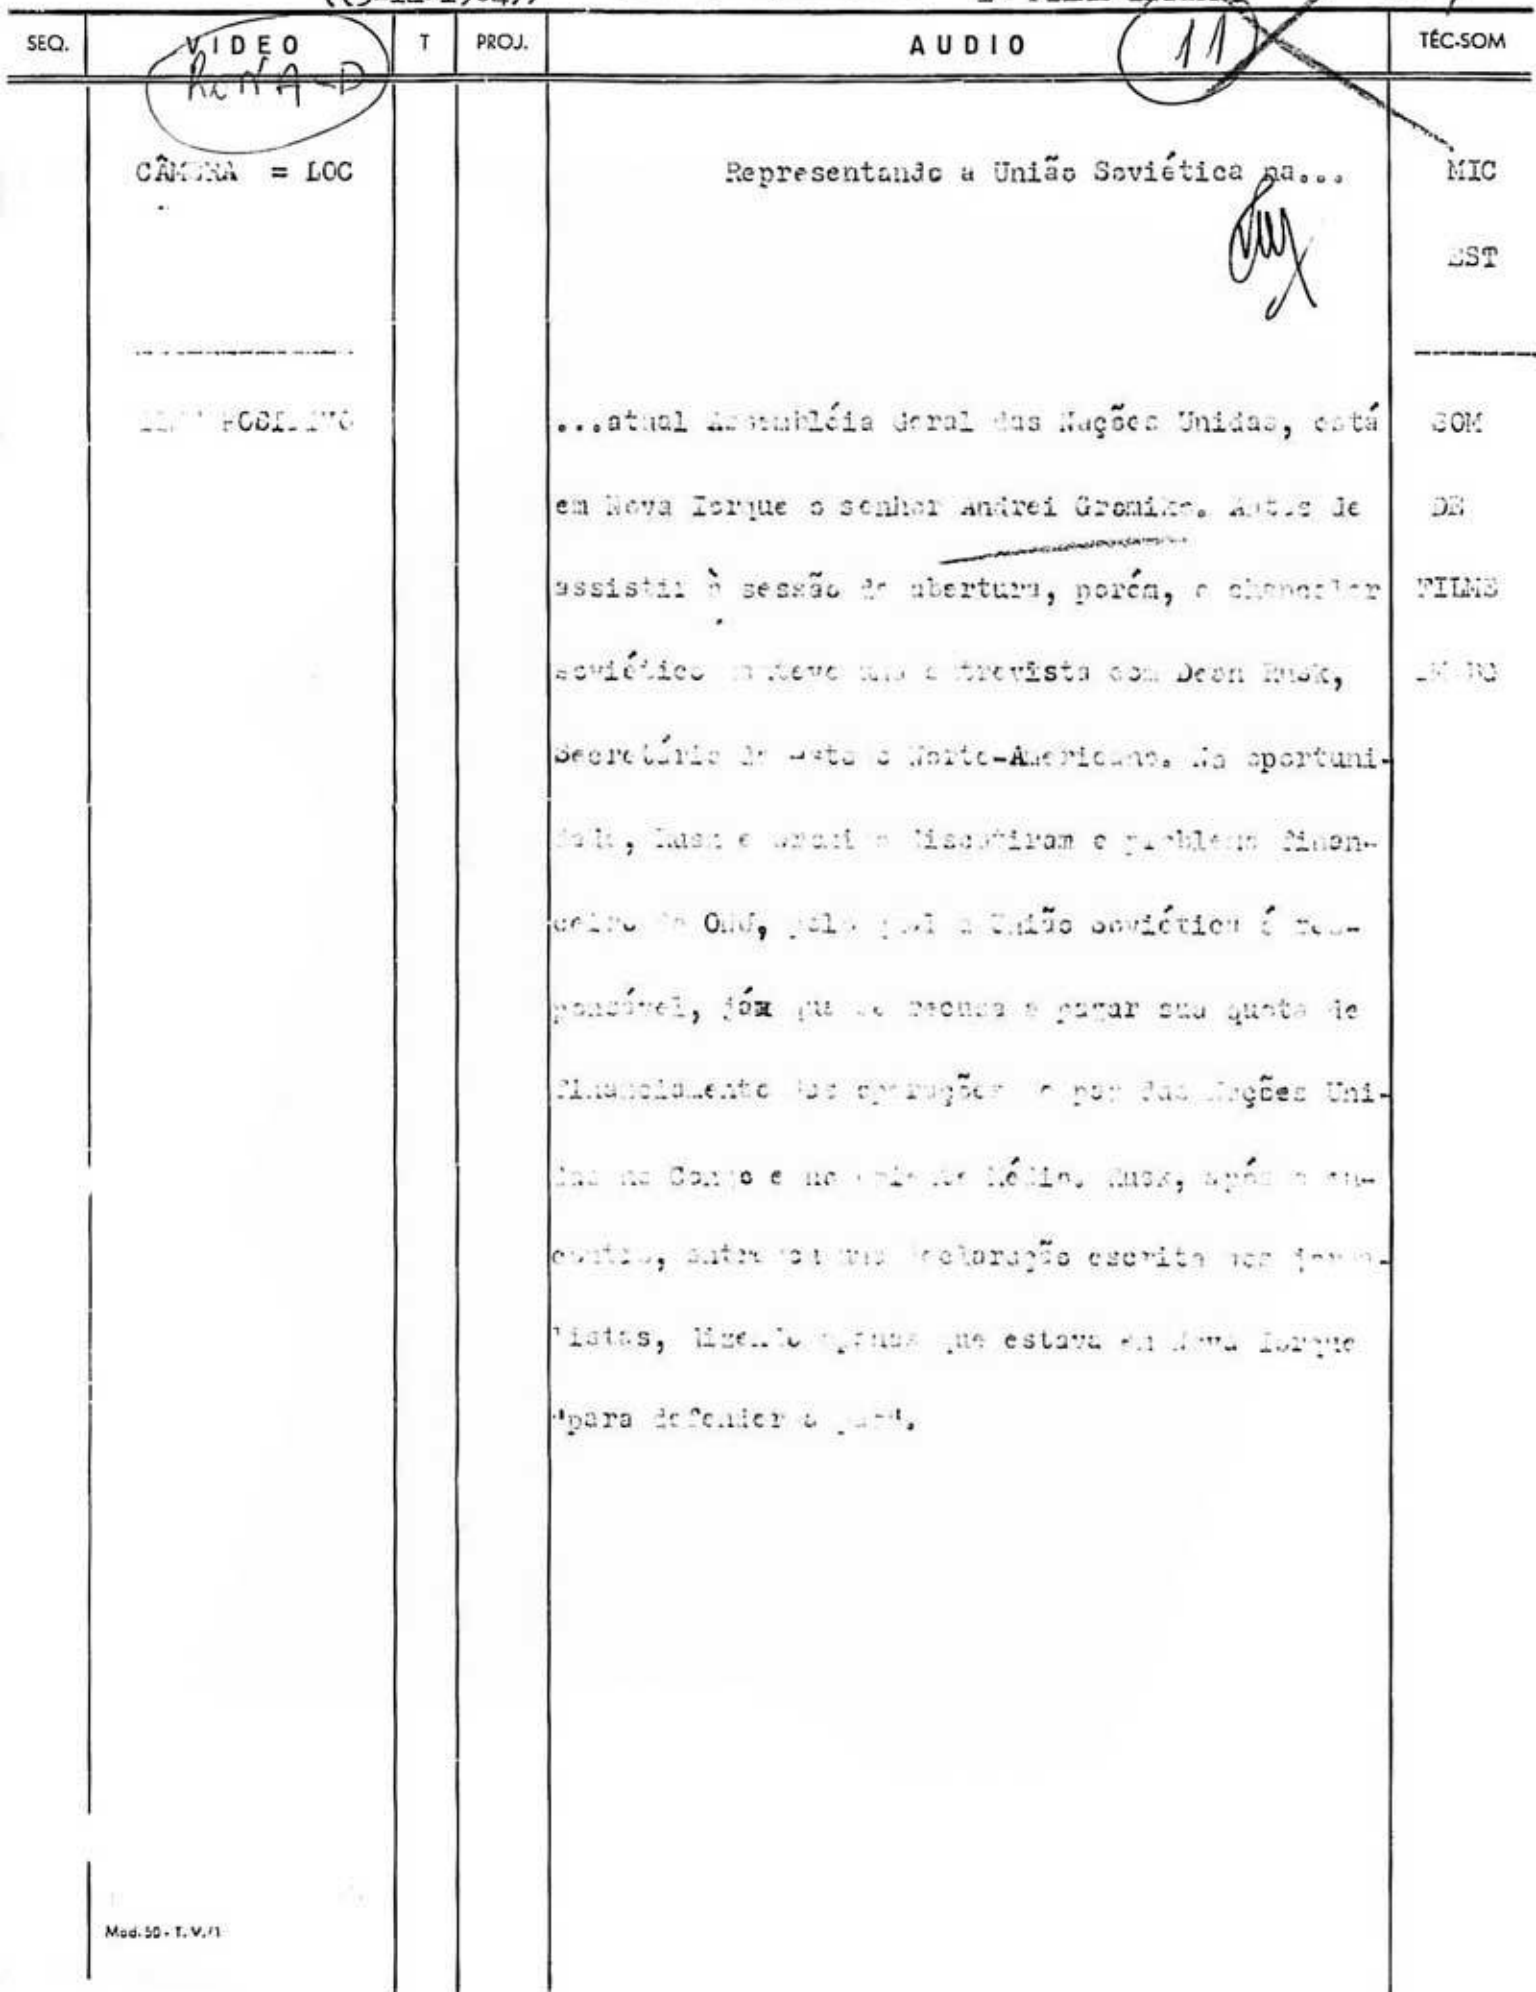 SEQ. VIDEO T PROJ. AUDIO 11 TÉC-SOM
CÂMERA = LOC Representando a União Soviética na... MIC
EST
POSITIVO ...atual Assembléia Geral das Nações Unidas, está SOM
em Nova Iorque o senhor Andrei Gromiko. Antes de DE
assistir à sessão de abertura, porém, o chanceler FILME
soviético manteve uma entrevista com Dean Rusk,
Secretário de Estado Norte-Americano. Na oportuni-
dade, Rusk e Gromiko discutiram o problema finan-
ceiro da ONU, pelo qual a União Soviética é res-
ponsável, jáx que se recusa a pagar sua quota de
financiamento das operações de paz das Nações Uni-
das no Congo e no Oriente Médio. Rusk, após o en-
contro, entregou uma declaração escrita aos jorna-
listas, dizendo apenas que estava em Nova Iorque
"para defender a paz".
Mod. 50 - T. V./1